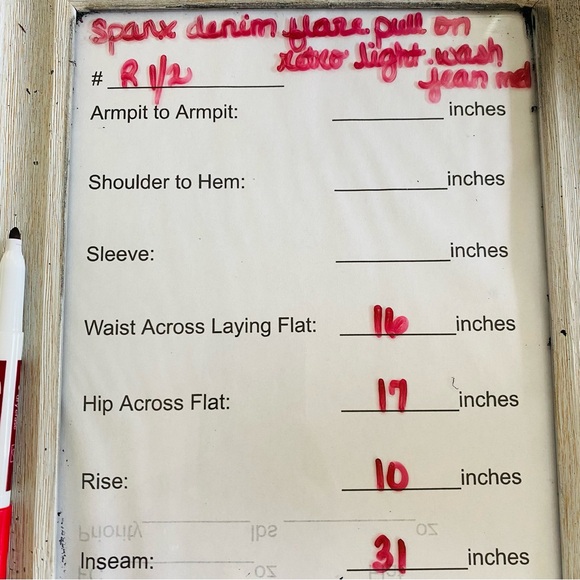 Spanx denim flare pull on
retro light wash
jean med
# R 1/2
Armpit to Armpit: ________ inches
Shoulder to Hem: ________ inches
Sleeve: ________ inches
Waist Across Laying Flat: 16 inches
Hip Across Flat: 17 inches
Rise: 10 inches
Priority ________ lbs ________ oz
Inseam: 31 inches
oz